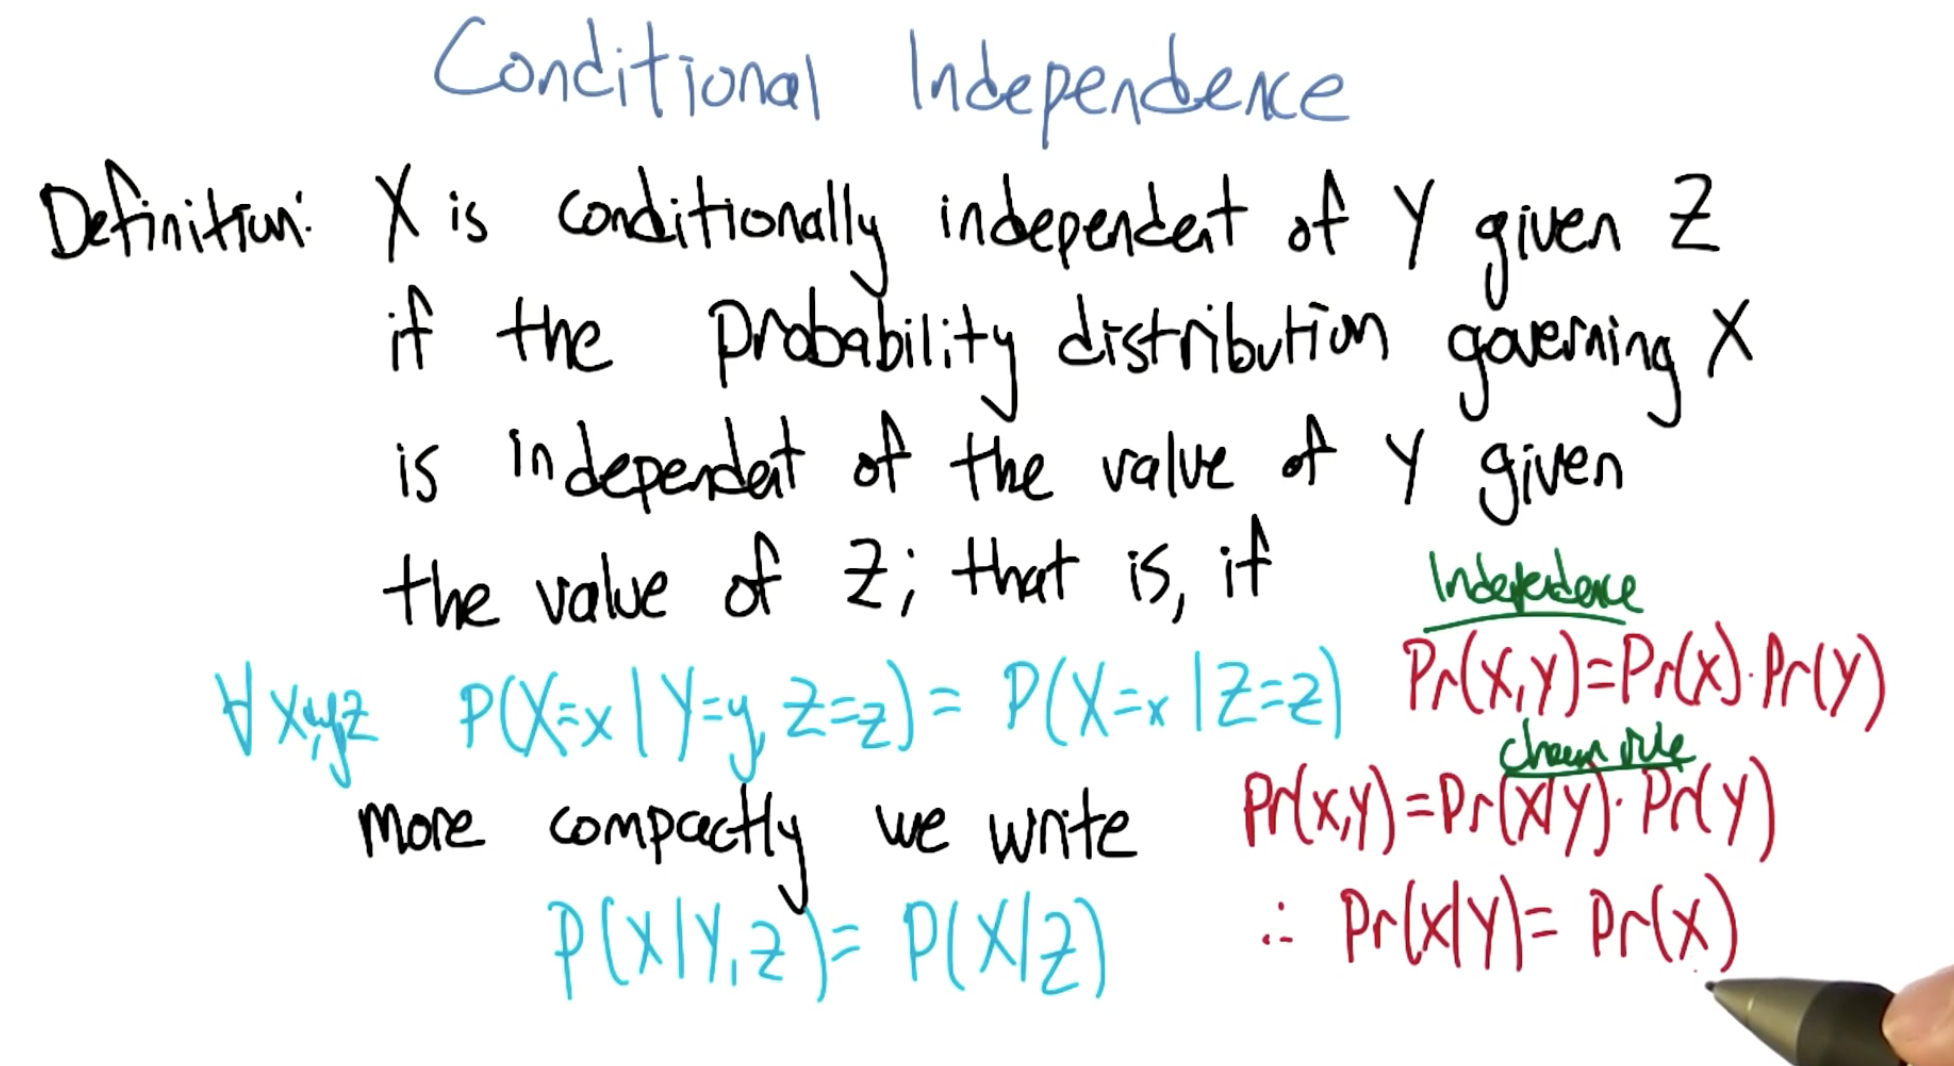 Conditional Independence
Definition: X is conditionally independent of Y given Z
if the probability distribution governing X
is independent of the value of Y given
the value of Z; that is, if
∀x,y,z P(X=x|Y=y, Z=z) = P(X=x|Z=z)
more compactly we write
P(X|Y,Z) = P(X|Z)
Independence
Pr(X,Y)=Pr(X)·Pr(Y)
chain rule
Pr(x,y)=Pr(x|y)·Pr(y)
∴ Pr(x|y)= Pr(x)